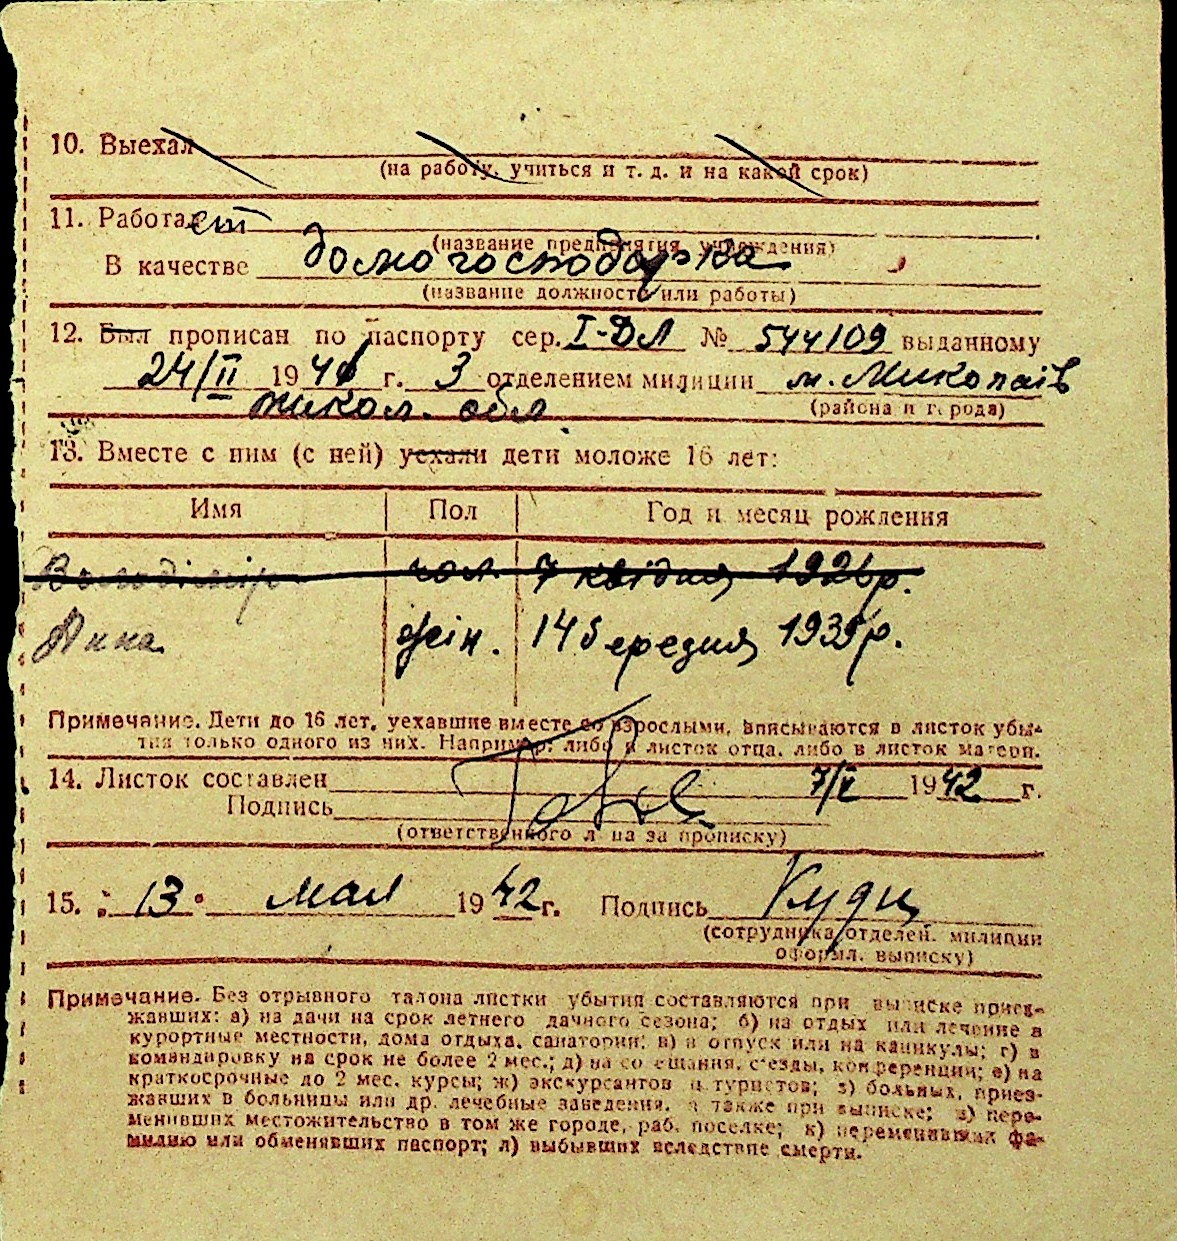 10. Выехал
(на работу, учиться и т. д. и на какой срок)
11. Работает
(название предприятия, учреждения)
В качестве домогосподарка
(название должности или работы)
12. Был прописан по паспорту сер. I-ДЛ № 544109 выданному
24/II 1941 г. 3 отделением милиции м. Миколаїв
микол. обл
(района и города)
13. Вместе с ним (с ней) уехали дети моложе 16 лет:
Имя Пол Год и месяц рождения
Володімір чол. 7 квідня 1926р.
Анна жін. 14 Березня 1939р.
Примечание. Дети до 16 лет, уехавшие вместе со взрослыми, вписываются в листок убы-
тия только одного из них. Например: либо в листок отца, либо в листок матери.
14. Листок составлен 7/V 1942 г.
Подпись
(ответственного лица за прописку)
15. "13" мая 1942 г. Подпись
(сотрудника отделен. милиции
оформл. выписку)
Примечание. Без отрывного талона листки убытия составляются при выписке приез-
жавших: а) на дачи на срок летнего дачного сезона; б) на отдых или лечение в
курортные местности, дома отдыха, санатории; в) в отпуск или на каникулы; г) в
командировку на срок не более 2 мес.; д) на совещания, съезды, конференции; е) на
краткосрочные до 2 мес. курсы; ж) экскурсантов и туристов; з) больных, приез-
жавших в больницы или др. лечебные заведения, а также при выписке; и) пере-
менивших местожительство в том же городе, раб. поселке; к) переменивших фа-
милию или обменявших паспорт; л) выбывших вследствие смерти.